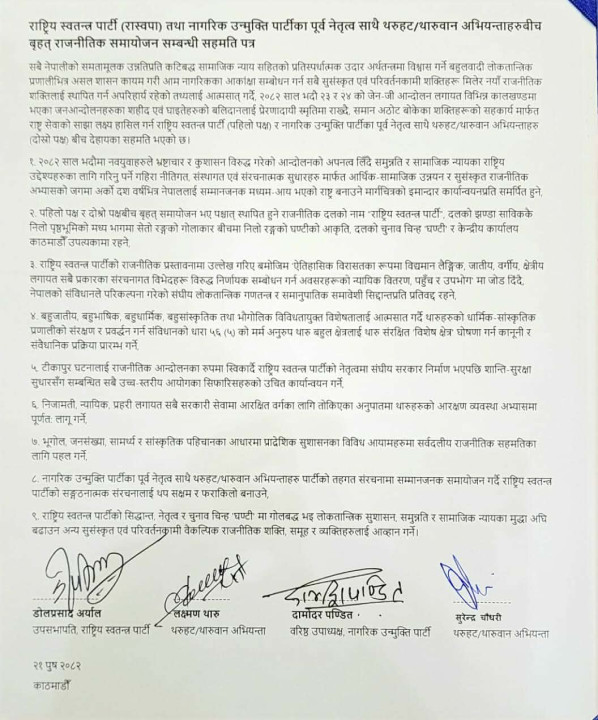 राष्ट्रिय स्वतन्त्र पार्टी (रास्वपा) तथा नागरिक उन्मुक्ति पार्टीका पूर्व नेतृत्व साथै थरुहट/थारुवान अभियन्ताहरुबीच
बृहत् राजनीतिक समायोजन सम्बन्धी सहमति पत्र
सबै नेपालीको समतामूलक उन्नतिप्रति कटिबद्ध सामाजिक न्याय सहितको प्रतिस्पर्धात्मक उदार अर्थतन्त्रमा विश्वास गर्ने बहुलवादी लोकतान्त्रिक
प्रणालीभित्र असल शासन कायम गरी आम नागरिकका आकांक्षा सम्बोधन गर्न सबै सुसंस्कृत एवं परिवर्तनकामी शक्तिहरू मिलेर नयाँ राजनीतिक
शक्तिलाई स्थापित गर्न अपरिहार्य रहेको तथ्यलाई आत्मसात् गर्दै, २०८२ साल भदौ २३ र २४ को जेन-जी आन्दोलन लगायत विभिन्न कालखण्डमा
भएका जनआन्दोलनहरुका शहीद एवं घाइतेहरुको बलिदानलाई प्रेरणादायी स्मृतिमा राख्दै, समान अठोट बोकेका शक्तिहरूको सहकार्य मार्फत
राष्ट्र सेवाको साझा लक्ष्य हासिल गर्न राष्ट्रिय स्वतन्त्र पार्टी (पहिलो पक्ष) र नागरिक उन्मुक्ति पार्टीका पूर्व नेतृत्व साथै थरुहट/थारुवान अभियन्ताहरु
(दोस्रो पक्ष) बीच देहायका सहमति भएको छ।
१. २०८२ साल भदौमा नवयुवाहरुले भ्रष्टाचार र कुशासन विरुद्ध गरेको आन्दोलनको अपनत्व लिँदै समुन्नति र सामाजिक न्यायका राष्ट्रिय
उद्देश्यहरुका लागि गरिनु पर्ने गहिरा नीतिगत, संस्थागत एवं संरचनागत सुधारहरु मार्फत आर्थिक-सामाजिक उन्नयन र सुसंस्कृत राजनीतिक
अभ्यासको जगमा अर्को दश वर्षभित्र नेपाललाई सम्मानजनक मध्यम-आय भएको राष्ट्र बनाउने मार्गचित्रको इमान्दार कार्यान्वयनप्रति समर्पित हुने,
२. पहिलो पक्ष र दोश्रो पक्षबीच बृहत् समायोजन भए पश्चात् स्थापित हुने राजनीतिक दलको नाम "राष्ट्रिय स्वतन्त्र पार्टी", दलको झण्डा साविककै
निलो पृष्ठभूमिको मध्य भागमा सेतो रङ्गको गोलाकार बीचमा निलो रङ्गको घण्टीको आकृति, दलको चुनाव चिन्ह 'घण्टी' र केन्द्रीय कार्यालय
काठमाडौँ उपत्यकामा रहने,
३. राष्ट्रिय स्वतन्त्र पार्टीको राजनीतिक प्रस्तावनामा उल्लेख गरिए बमोजिम 'ऐतिहासिक विरासतका रूपमा विद्यमान लैङ्गिक, जातीय, वर्गीय, क्षेत्रीय
लगायत सबै प्रकारका संरचनागत विभेदहरू विरुद्ध निर्णायक सम्बोधन गर्न अवसरहरूको न्यायिक वितरण, पहुँच र उपभोग' मा जोड दिँदै,
नेपालको संविधानले परिकल्पना गरेको संघीय लोकतान्त्रिक गणतन्त्र र समानुपातिक समावेशी सिद्धान्तप्रति प्रतिवद्द रहने,
४. बहुजातीय, बहुभाषिक, बहुधार्मिक, बहुसांस्कृतिक तथा भौगोलिक विविधतायुक्त विशेषतालाई आत्मसात गर्दै थारुहरुको धार्मिक-सांस्कृतिक
प्रणालीको संरक्षण र प्रवर्द्धन गर्न संविधानको धारा ५६ (५) को मर्म अनुरुप थारु बहुल क्षेत्रलाई थारु संरक्षित 'विशेष क्षेत्र' घोषणा गर्न कानूनी र
संवैधानिक प्रक्रिया प्रारम्भ गर्ने,
५. टीकापुर घटनालाई राजनीतिक आन्दोलनका रुपमा स्विकार्दै राष्ट्रिय स्वतन्त्र पार्टीको नेतृत्वमा संघीय सरकार निर्माण भएपछि शान्ति-सुरक्षा
सुधारसँग सम्बन्धित सबै उच्च-स्तरीय आयोगका सिफारिसहरुको उचित कार्यान्वयन गर्ने,
६. निजामती, न्यायिक, प्रहरी लगायत सबै सरकारी सेवामा आरक्षित वर्गका लागि तोकिएका अनुपातमा थारुहरुको आरक्षण व्यवस्था अभ्यासमा
पूर्णत: लागू गर्ने,
७. भूगोल, जनसंख्या, सामर्थ्य र सांस्कृतिक पहिचानका आधारमा प्रादेशिक सुशासनका विविध आयामहरुमा सर्वदलीय राजनीतिक सहमतिका
लागि पहल गर्ने,
८. नागरिक उन्मुक्ति पार्टीका पूर्व नेतृत्व साथै थरुहट/थारुवान अभियन्ताहरु पार्टीको तहगत संरचनामा सम्मानजनक समायोजन गर्दै राष्ट्रिय स्वतन्त्र
पार्टीको सङ्गठनात्मक संरचनालाई थप सक्षम र फराकिलो बनाउने,
९. राष्ट्रिय स्वतन्त्र पार्टीको सिद्धान्त, नेतृत्व र चुनाव चिन्ह 'घण्टी' मा गोलबद्ध भइ लोकतान्त्रिक सुशासन, समुन्नति र सामाजिक न्यायका मुद्धा अघि
बढाउन अन्य सुसंस्कृत एवं परिवर्तनकामी वैकल्पिक राजनीतिक शक्ति, समूह र व्यक्तिहरुलाई आव्हान गर्ने।
दामोदर पण्डित
डोलप्रसाद अर्याल लक्ष्मण थारु दामोदर पण्डित सुरेन्द्र चौधरी
उपसभापति, राष्ट्रिय स्वतन्त्र पार्टी थरुहट/थारुवान अभियन्ता वरिष्ठ उपाध्यक्ष, नागरिक उन्मुक्ति पार्टी थरुहट/थारुवान अभियन्ता
२१ पुष २०८२
काठमाडौँ